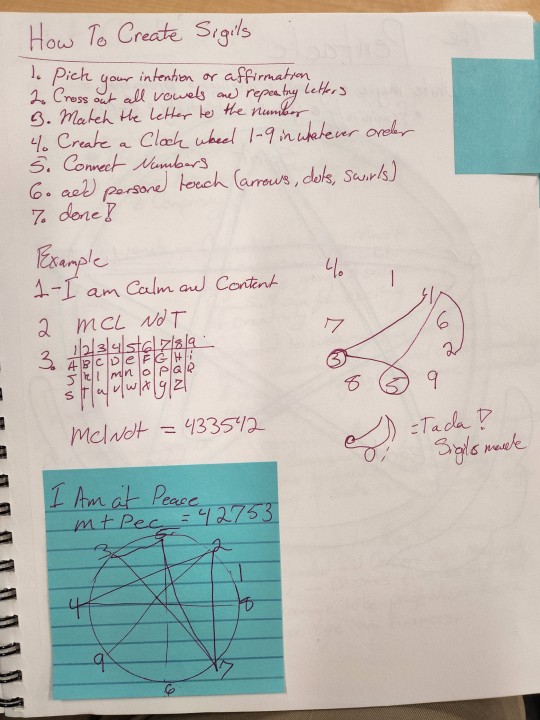 How To Create Sigils
1. Pick your intention or affirmation
2. Cross out all vowels and repeating letters
3. Match the letter to the number
4. Create a Clock wheel 1-9 in whatever order
5. Connect Numbers
6. add personal touch (arrows, dots, swirls)
7. done!
Example
1-I am Calm and Content
2 MCL NDT
3.
1 2 3 4 5 6 7 8 9
A B C D e F G H i
J k l m n o p Q R
S T u v w x y Z
MClNdt = 433542
4.
1
4
7
6
2
3
8
5
9
= Tada!
Sigils made
I Am at Peace
m t Pec = 42753
5
3
2
1
4
8
9
7
6